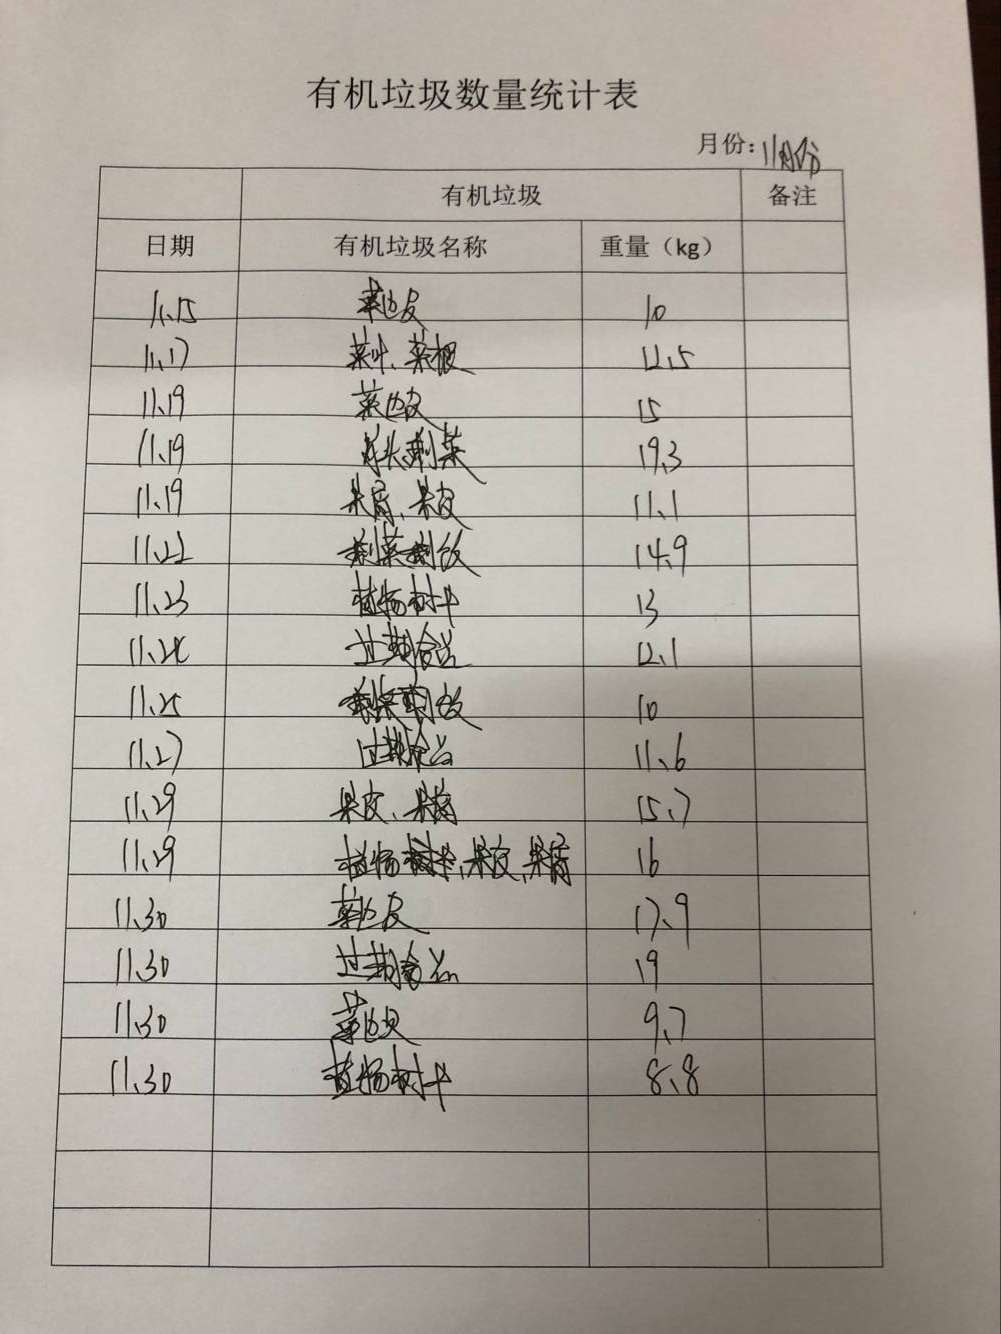 有机垃圾数量统计表
月份：11月份
有机垃圾 备注
日期 有机垃圾名称 重量（kg）
11.15 菜边皮 10
11.17 菜叶、菜根 12.5
11.19 菜边皮 15
11.19 剩菜 19.3
11.19 果屑、果皮 11.1
11.22 剩菜剩饭 14.9
11.23 植物树叶 13
11.24 过期食品 12.1
11.25 剩菜剩饭 10
11.27 过期食品 11.6
11.29 果皮、果屑 15.7
11.29 植物树叶、果皮、果屑 16
11.30 菜边皮 17.9
11.30 过期食品 19
11.30 菜边皮 9.7
11.30 植物树叶 8.8